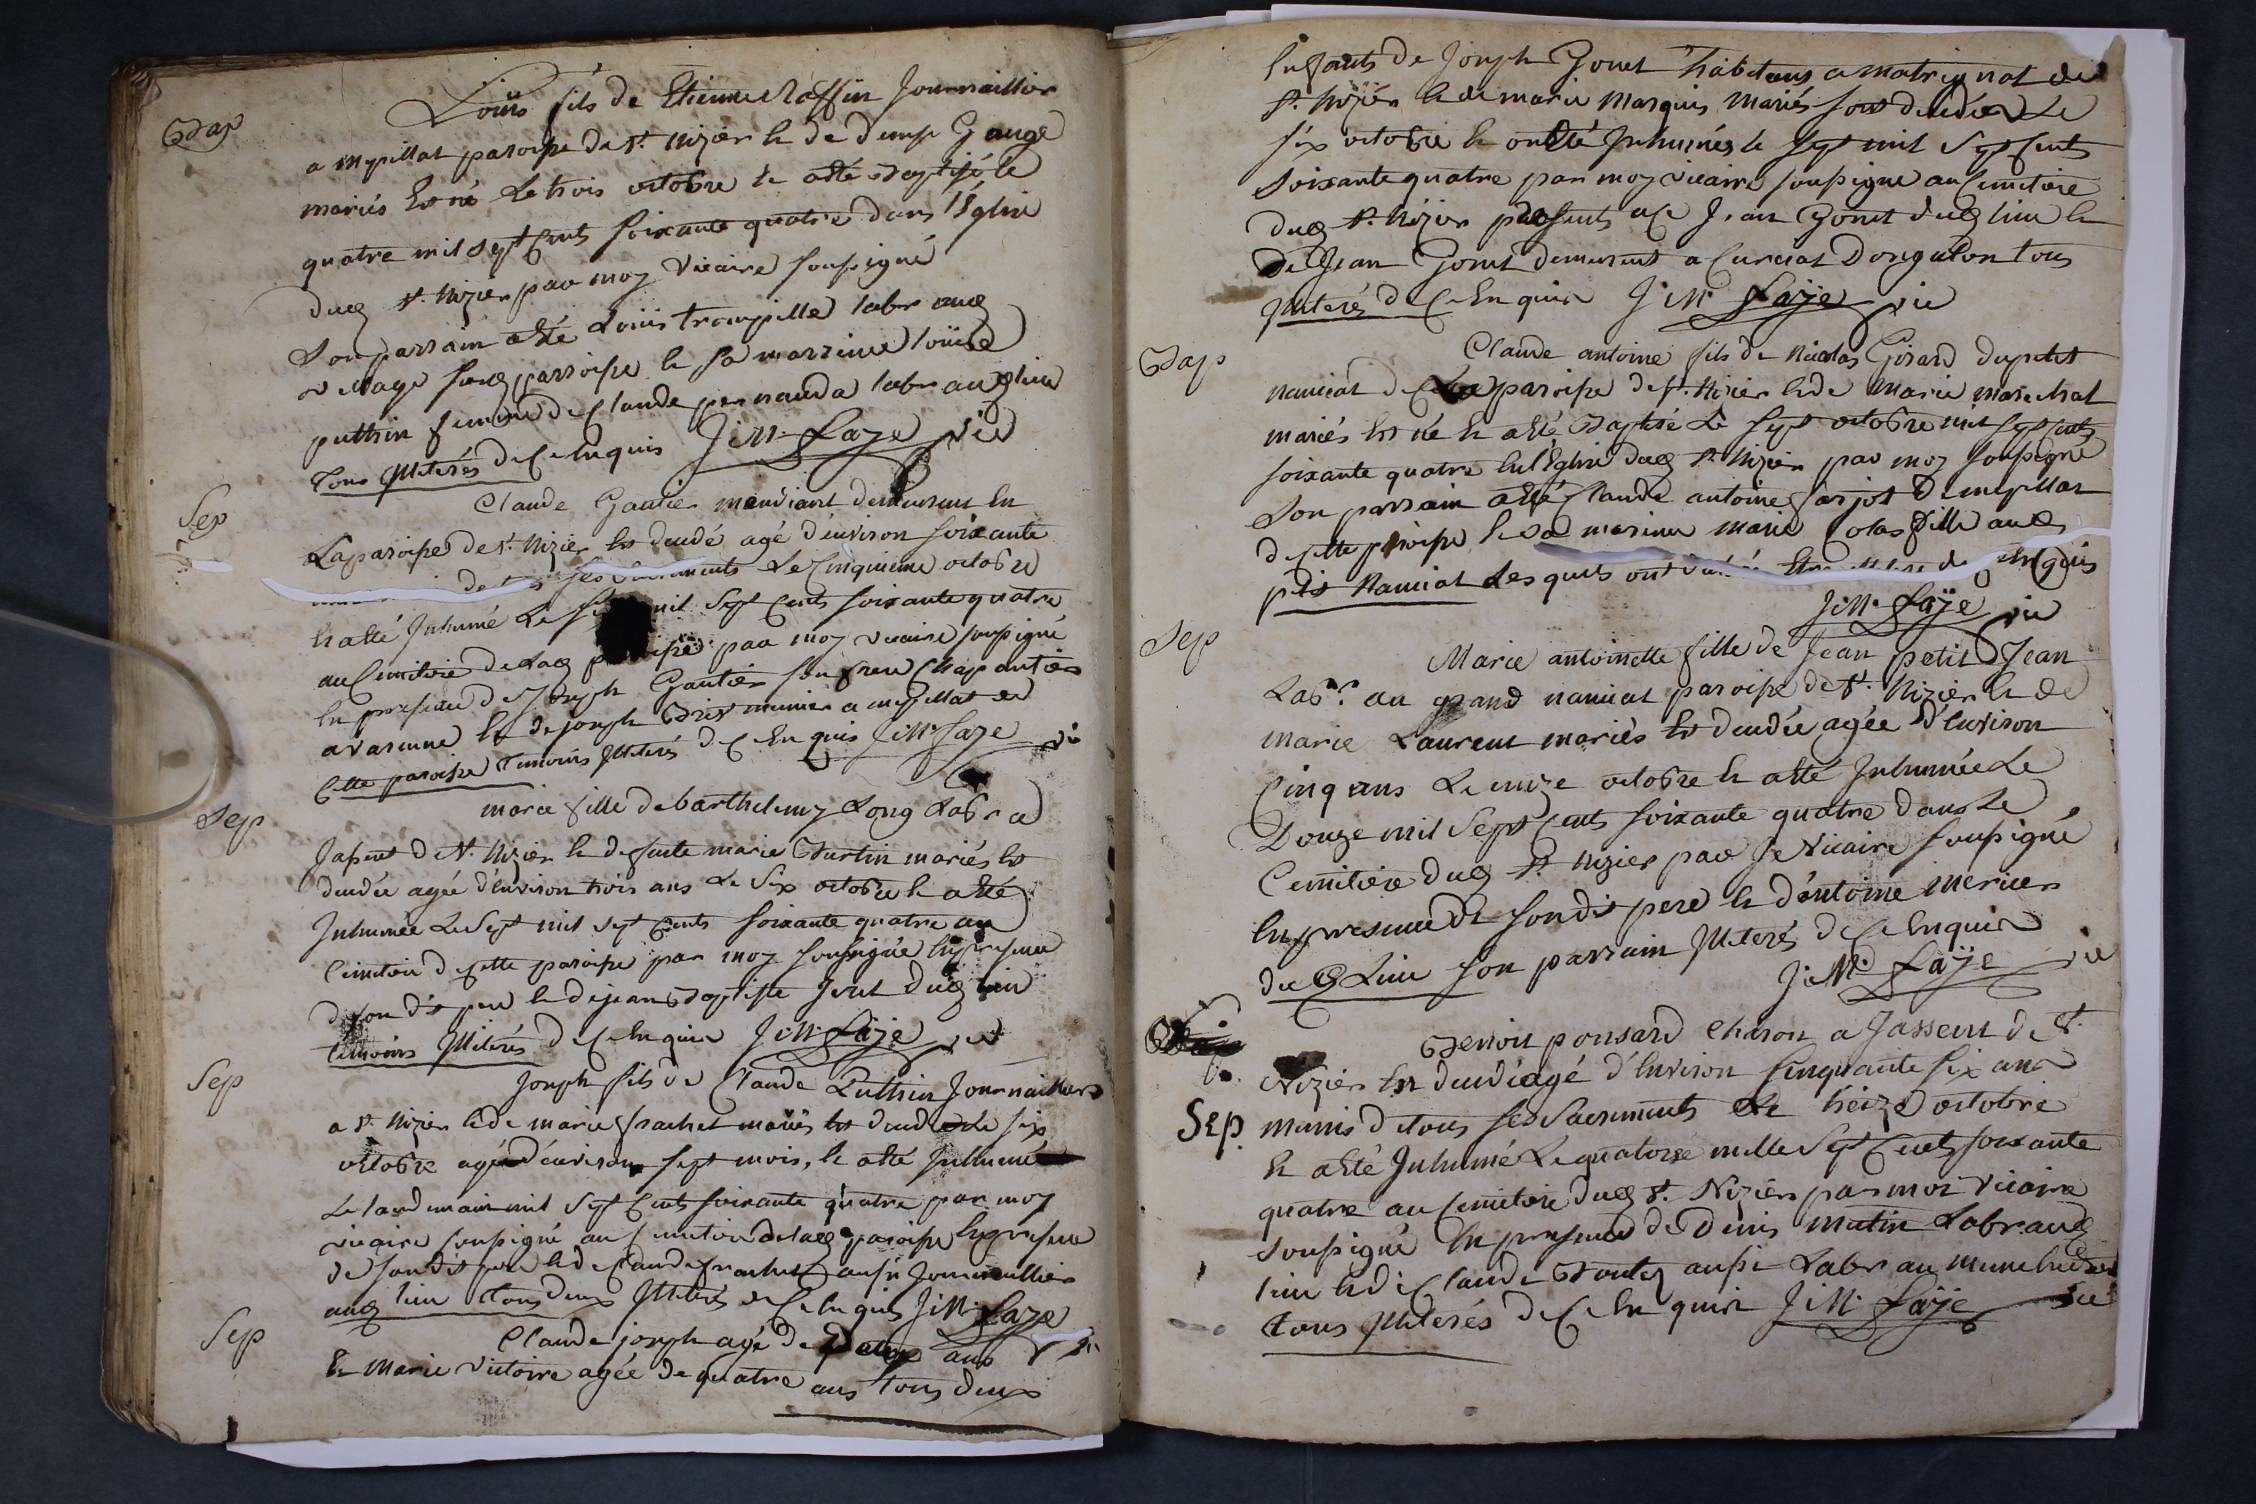 Bap
Louis fils de Etienne Raffin Journaillier
a mepillat paroisse de st. nizier & de denise Gauge
mariés Est né Le trois octobre & a été Baptisé le
quatre mil sept Cents soixante quatre dans l'église
dud st. Nizier par moy vicaire soussigné
Son parrain a été Louis trompille labr aud
village susd parroisse & sa marrinne louise
puthin femme de Claude pernauda labr aud lieu
Tous illiterés de Ce Enquis J: M: Faye vic
Sep
Claude Gautier mandiant demeurant En
Laparoisse de st. Nizier Est decedé agé d'environ soixante
de ses sacrements Le Cinquieme octobre
& a été Inhumé Le mil sept Cents soixante quatre
au Cimitiere de Lad par moy vicaire soussigné
En presence de Joseph Gautier son frere Chapantier
a varenne & de joseph Brev munier a mepillat de
Cette paroisse Temoins illiterés de Ce Enquis J: M: Faye vic
Sep
marie fille de barthelemy Long Labr a
Jassent de st. Nizier & defunte marie Burtin mariés Est
decedée agée d'environ trois ans Le Six octobre & a été
Inhumée Le Sept mil sept Cents soixante quatre au
Cimitiere de Cette paroisse par moy soussigné En presence
de son dit pere & de jean Baptiste Jvnt dud lieu
temoins illiterés de Ce Enquis J: M: Faÿe vic
Sep
Joseph fils de Claude Puthin Journaillier
a st. Nizier & de marie frachet mariés Est decedé Le six
octobre agé d'environ sept mois, & a été Inhumé
Le landemain mil sept Cents soixante quatre par moy
vicaire soussigné au Cimitiere de lad paroisse En presence
de son dit pere & de Claude frachet aussi Journaillier
aud lieu tous deux illiterés de Ce Enquis J: M: Faye vic
Sep
Claude joseph agé de ans
& Marie victoire agée de quatre ans tous deux
Enfants de Joseph Gonet habitans a Matrignat de
st. Nizier & de marie Marquis Mariés sont decedés Le
six octobre & ont été Inhumés le sept mil sept Cents
Soixante quatre par moy vicaire soussigné au Cimitiere
dud st. Nizier presents a Ce Jean Gonet dud lieu &
de Jean Gonet demeurant a Curciat Dongalon tous
illiterés de Ce Enquis J: M: Faÿe vic
Bap
Claude antoine fils de Nicolas Girard du petit
namiat de Cette paroisse de st. Nizier & de marie marechal
mariés Est né & a été Baptisé Le sept octobre mil sept Cents
soixante quatre En l'église dud st. Nizier par moy soussigné
Son parrain a été Claude antoine farjot de mepillat
de Cette paroisse & sa marinne Marie Colas fille aud
ptit Namiat Lesquels ont enquis
J: M: Faÿe vic
Sep
Marie antoinette fille de Jean petit Jean
Labr. au grand namiat paroisse de st. Nizier & de
marie Laurent mariés Est decedée agée d'Environ
Cinq ans Le onze octobre & a été Inhumée Le
Douze mil Sept Cents soixante quatre dans Le
Cemitiere dud st. Nizier par Je Vicaire soussigné
En presence de son dit pere & d'antoine Mericer
dud Lieu son parrain illiterés de Ce Enquis
J: M: Faÿe vic
Sep
Benoit ponsard Charon a Jassent de st.
Nizier Est decedé agé d'Environ Cinquante six ans
munis de tous ses Sacrements Le treize octobre
& a été Inhumé Le quatorze mille sept Cents soixante
quatre au Cemitiere dud st. Nizier par moi Vicaire
soussigné En presence de Denis Mutin Labr aud
lieu & de Claude Boutez aussi Labr au meme lieu
tous illiterés de Ce Enquis J: M: Faÿe vic